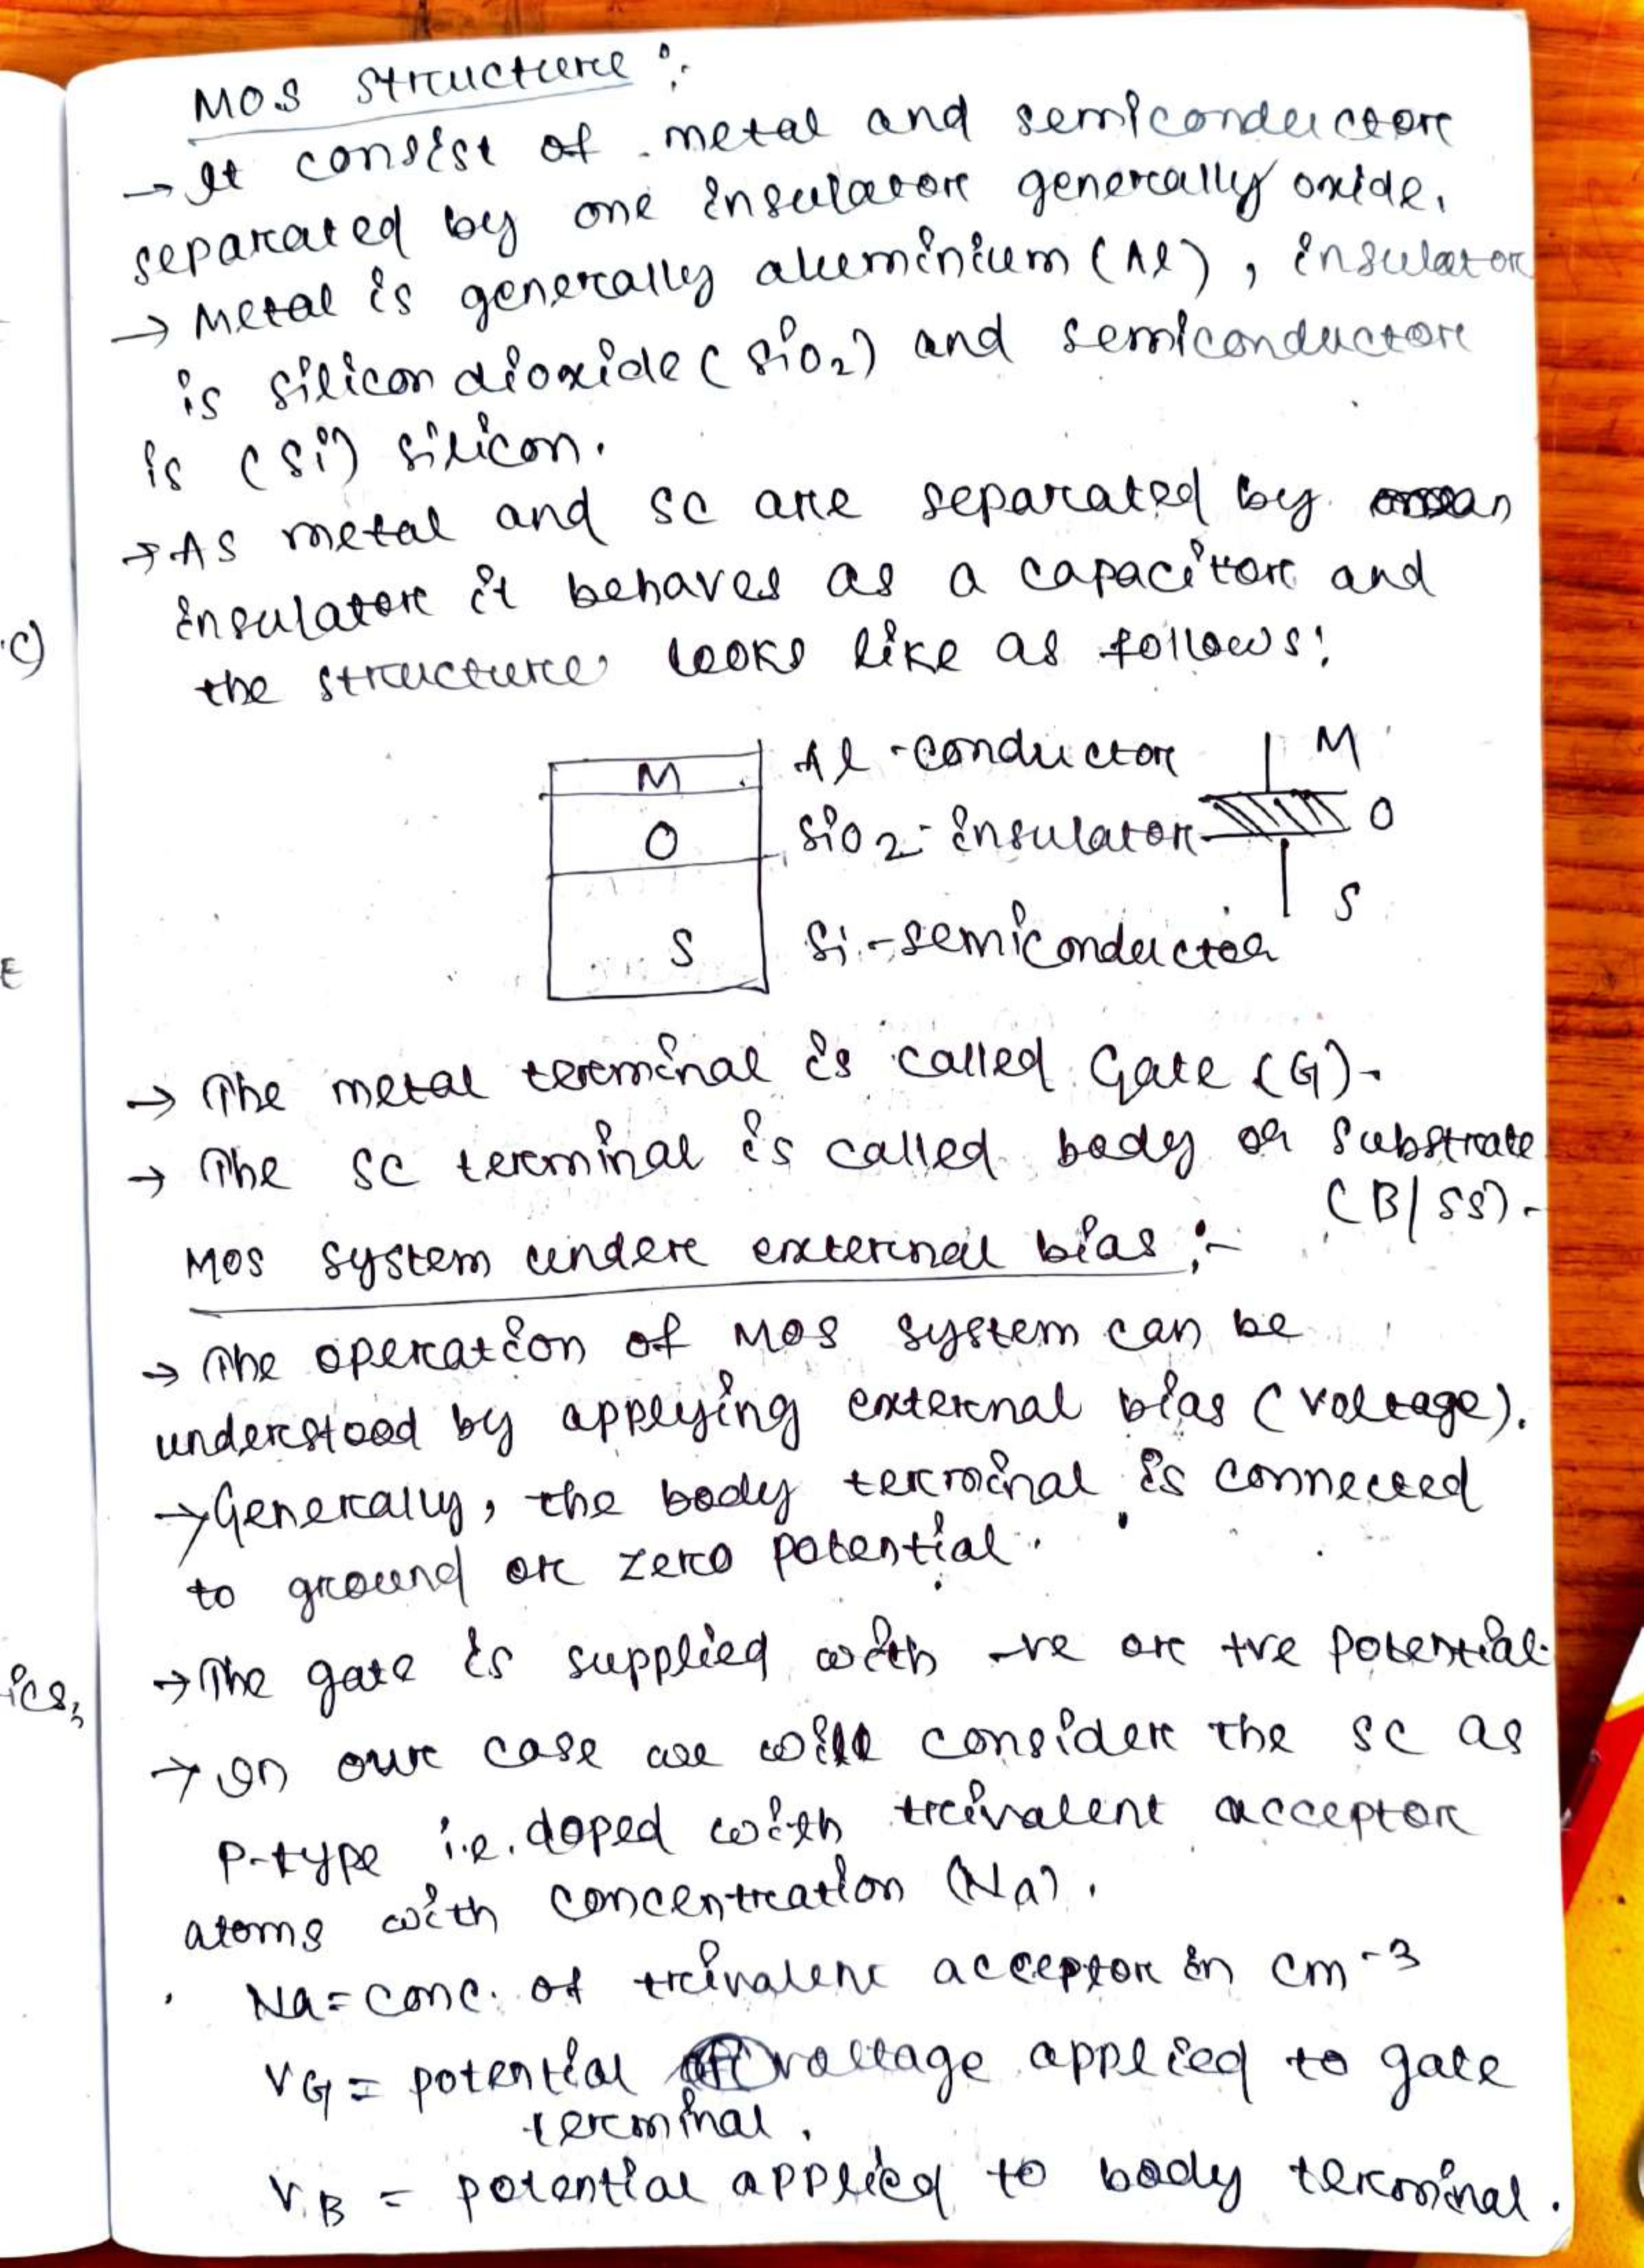 MOS structure :-
→ It consist of metal and semiconductor
separated by one insulator generally oxide.
→ Metal is generally aluminium (Al), insulator
is silicon dioxide (SiO2) and semiconductor
is (Si) silicon.
→ As metal and SC are separated by an
insulator it behaves as a capacitor and
the structure looks like as follows:
M Al-conductor M
O SiO2-insulator O
S Si-semiconductor S
→ The metal terminal is called Gate (G).
→ The SC terminal is called body or substrate
(B/SS).
MOS system under external bias :-
→ The operation of MOS system can be
understood by applying external bias (voltage).
→ Generally, the body terminal is connected
to ground or zero potential.
→ The gate is supplied with -ve or +ve potential.
→ In our case we will consider the SC as
P-type i.e. doped with trivalent acceptor
atoms with concentration (Na).
Na = conc. of trivalent acceptor in cm-3
VG = potential voltage applied to gate
terminal.
VB = potential applied to body terminal.
c)
E
ics,